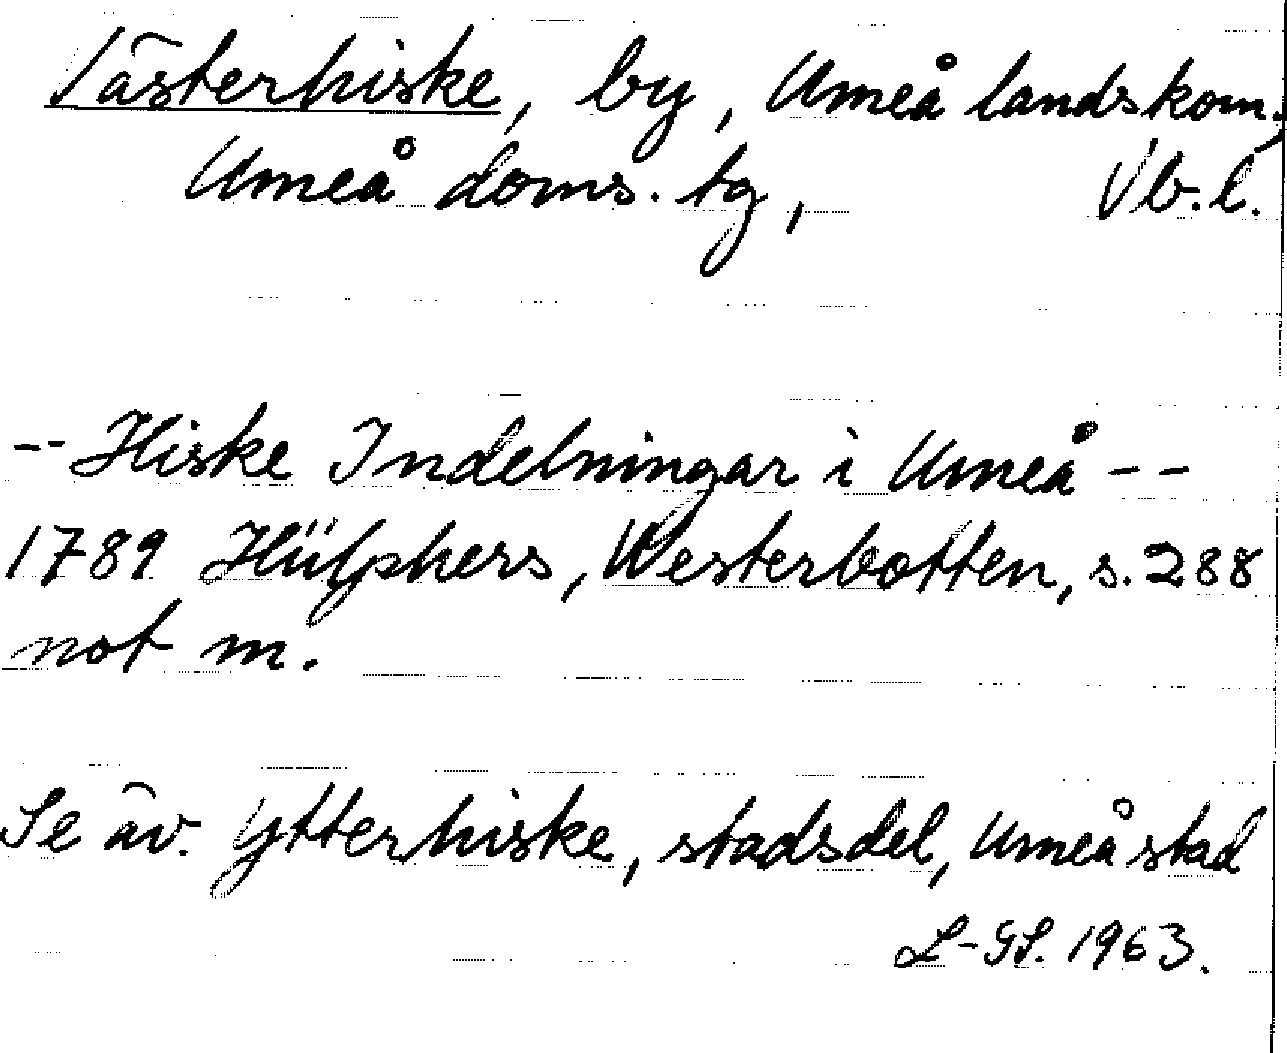 Västerhiske, by, Umeå landskom;
Umeå doms. tg, Vb.l.
-- Hiske Indelningar i Umeå --
1789 Hülphers, Westerbotten, s. 288
not m.
Se äv. Ytterhiske, stadsdel, Umeå stad
L-GS. 1963.